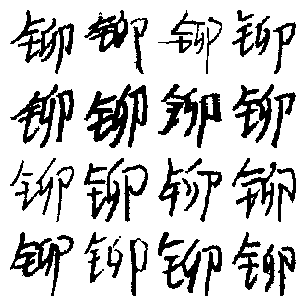 铆铆铆铆
铆铆铆铆
铆铆铆铆
铆铆铆铆